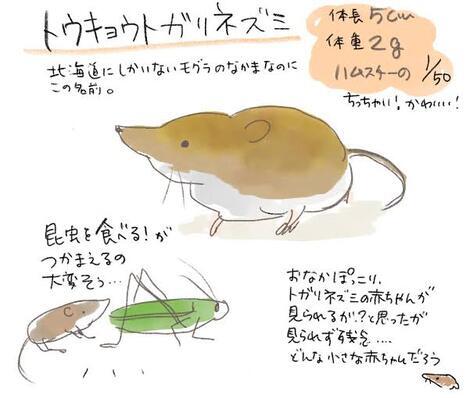 トウキョウトガリネズミ
北海道にしかいないモグラのなかまなのに
この名前。
体長5cm
体重2g
ハムスケーの
1/50
ちっちゃい!かわいい!
昆虫を食べる!が
つかまえるの
大変そう…
おなかぽっこり、
トガリネズミの赤ちゃんが
見られるか?と思ったが
見られず残念....
どんな小さな赤ちゃんだろう